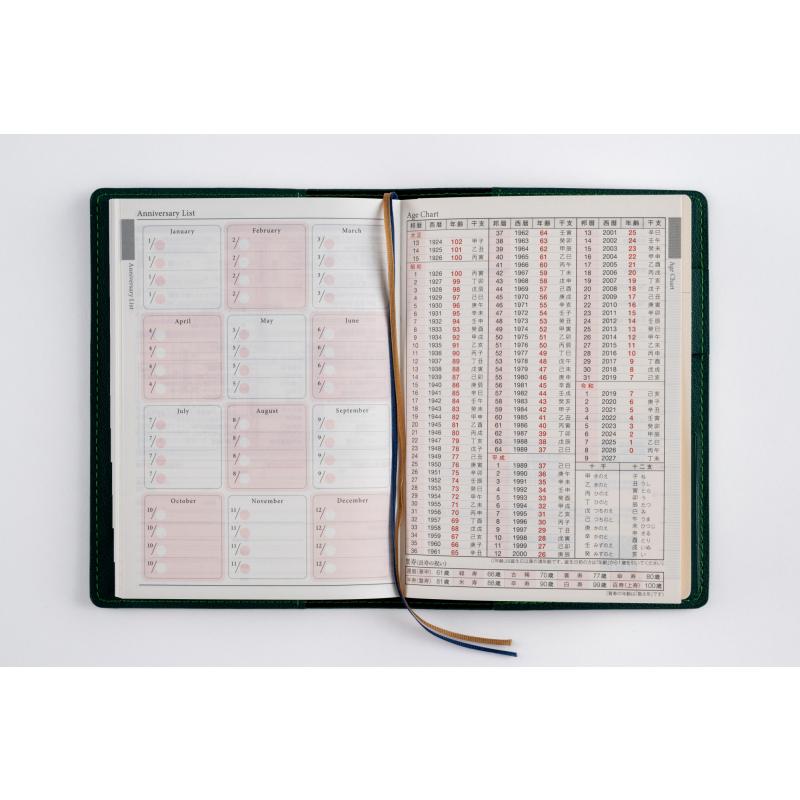 Anniversary List
January
February
March
1/
2/
3/
1/
2/
3/
1/
2/
3/
1/
2/
3/
April
May
June
4/
5/
6/
4/
5/
6/
4/
5/
6/
4/
5/
6/
July
August
September
7/
8/
9/
7/
8/
9/
7/
8/
9/
7/
8/
9/
October
November
December
10/
11/
12/
10/
11/
12/
10/
11/
12/
10/
11/
12/
Anniversary List
Age Chart
邦暦 西暦 年齢 干支 邦暦 西暦 年齢 干支 邦暦 西暦 年齢 干支
大正
13 1924 102 甲子
14 1925 101 乙丑
15 1926 100 丙寅
昭和
1 1926 100 丙寅
2 1927 99 丁卯
3 1928 98 戊辰
4 1929 97 己巳
5 1930 96 庚午
6 1931 95 辛未
7 1932 94 壬申
8 1933 93 癸酉
9 1934 92 甲戌
10 1935 91 乙亥
11 1936 90 丙子
12 1937 89 丁丑
13 1938 88 戊寅
14 1939 87 己卯
15 1940 86 庚辰
16 1941 85 辛巳
17 1942 84 壬午
18 1943 83 癸未
19 1944 82 甲申
20 1945 81 乙酉
21 1946 80 丙戌
22 1947 79 丁亥
23 1948 78 戊子
24 1949 77 己丑
25 1950 76 庚寅
26 1951 75 辛卯
27 1952 74 壬辰
28 1953 73 癸巳
29 1954 72 甲午
30 1955 71 乙未
31 1956 70 丙申
32 1957 69 丁酉
33 1958 68 戊戌
34 1959 67 己亥
35 1960 66 庚子
36 1961 65 辛丑
37 1962 64 壬寅
38 1963 63 癸卯
39 1964 62 甲辰
40 1965 61 乙巳
41 1966 60 丙午
42 1967 59 丁未
43 1968 58 戊申
44 1969 57 己酉
45 1970 56 庚戌
46 1971 55 辛亥
47 1972 54 壬子
48 1973 53 癸丑
49 1974 52 甲寅
50 1975 51 乙卯
51 1976 50 丙辰
52 1977 49 丁巳
53 1978 48 戊午
54 1979 47 己未
55 1980 46 庚申
56 1981 45 辛酉
57 1982 44 壬戌
58 1983 43 癸亥
59 1984 42 甲子
60 1985 41 乙丑
61 1986 40 丙寅
62 1987 39 丁卯
63 1988 38 戊辰
64 1989 37 己巳
平成
1 1989 37 己巳
2 1990 36 庚午
3 1991 35 辛未
4 1992 34 壬申
5 1993 33 癸酉
6 1994 32 甲戌
7 1995 31 乙亥
8 1996 30 丙子
9 1997 29 丁丑
10 1998 28 戊寅
11 1999 27 己卯
12 2000 26 庚辰
13 2001 25 辛巳
14 2002 24 壬午
15 2003 23 癸未
16 2004 22 甲申
17 2005 21 乙酉
18 2006 20 丙戌
19 2007 19 丁亥
20 2008 18 戊子
21 2009 17 己丑
22 2010 16 庚寅
23 2011 15 辛卯
24 2012 14 壬辰
25 2013 13 癸巳
26 2014 12 甲午
27 2015 11 乙未
28 2016 10 丙申
29 2017 9 丁酉
30 2018 8 戊戌
31 2019 7 己亥
令和
1 2019 7 己亥
2 2020 6 庚子
3 2021 5 辛丑
4 2022 4 壬寅
5 2023 3 癸卯
6 2024 2 甲辰
7 2025 1 乙巳
8 2026 0 丙午
9 2027 丁未
十干 十二支
甲 きのえ 子 ね
乙 きのと 丑 うし
丙 ひのえ 寅 とら
丁 ひのと 卯 う
戊 つちのえ 辰 たつ
己 つちのと 巳 み
庚 かのえ 午 うま
辛 かのと 未 ひつじ
壬 みずのえ 申 さる
癸 みずのと 酉 とり
戌 いぬ
亥 い
賀寿(長寿の祝い)
還暦(華甲) 61歳 緑寿 66歳 古稀 70歳 喜寿 77歳 傘寿 80歳
半寿(盤寿) 81歳 米寿 88歳 卒寿 90歳 白寿 99歳 百寿(上寿) 100歳
(賀寿の年齢は「数え年」です)
Age Chart